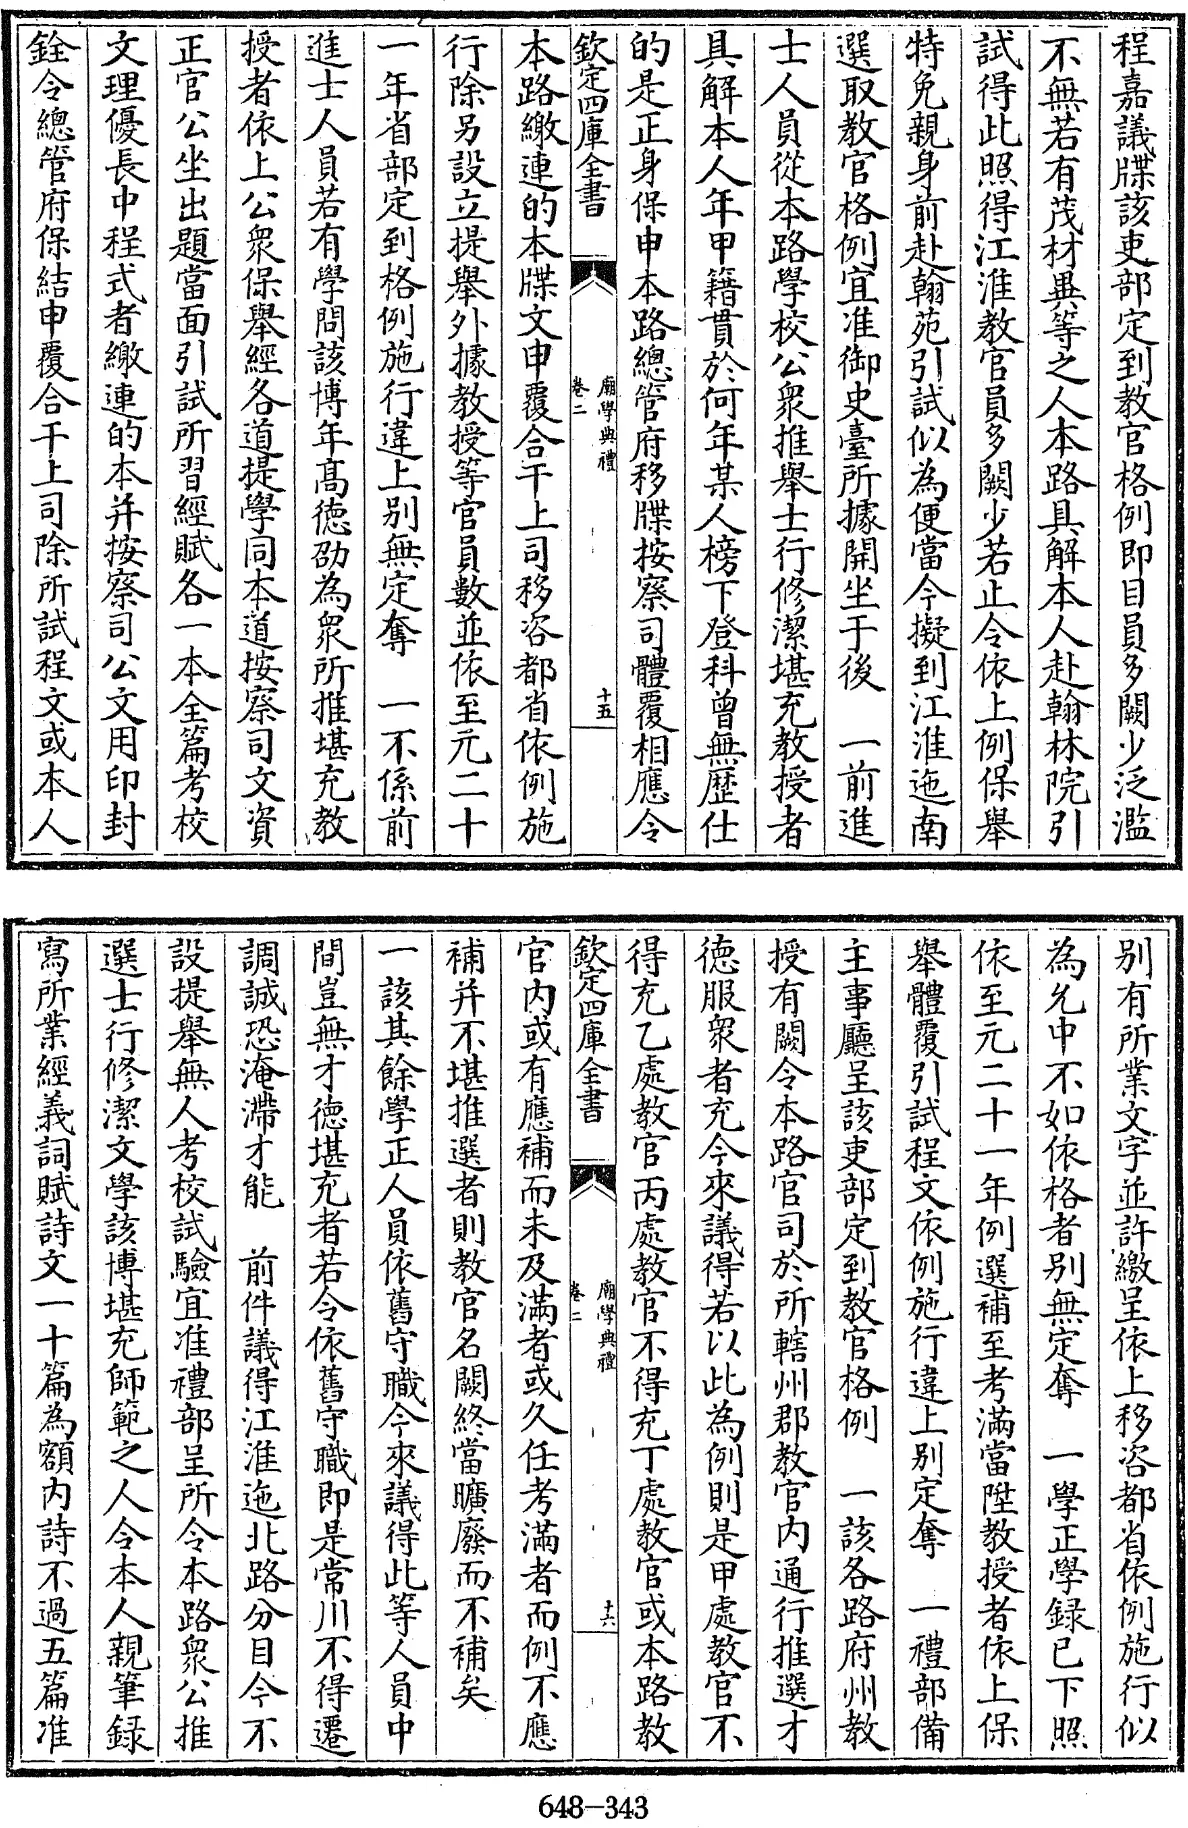 程嘉議牒該吏部定到教官格例即目員多闕少泛濫
不無若有茂材異等之人本路具解本人赴翰林院引
試得此照得江淮教官員多闕少若止令依上例保舉
特免親身前赴翰苑引試似為便當今擬到江淮迤南
選取教官格例宜准御史臺所據開坐于後　一前進
士人員從本路學校公衆推舉士行修潔堪充教授者
具解本人年甲籍貫於何年某人榜下登科曾無歷仕
的是正身保申本路總管府移牒按察司體覆相應令
欽定四庫全書
廟學典禮
卷二
十五
本路繳連的本牒文申覆合干上司移咨都省依例施
行除另設立提舉外據教授等官員數並依至元二十
一年省部定到格例施行違上別無定奪　一不係前
進士人員若有學問該博年高徳劭為衆所推堪充教
授者依上公衆保舉經各道提學同本道按察司文資
正官公坐出題當面引試所習經賦各一本全篇考校
文理優長中程式者繳連的本并按察司公文用印封
銓令總管府保結申覆合干上司除所試程文或本人
別有所業文字並許繳呈依上移咨都省依例施行似
為允中不如依格者別無定奪　一學正學録已下照
依至元二十一年例選補至考滿當陞教授者依上保
舉體覆引試程文依例施行違上別定奪　一禮部備
主事廳呈該吏部定到教官格例　一該各路府州教
授有闕令本路官司於所轄州郡教官内通行推選才
徳服衆者充今來議得若以此為例則是甲處教官不
得充乙處教官丙處教官不得充丁處教官或本路教
欽定四庫全書
廟學典禮
卷二
十六
官内或有應補而未及滿者或久任考滿者而例不應
補并不堪推選者則教官名闕終當曠廢而不補矣
一該其餘學正人員依舊守職今來議得此等人員中
間豈無才徳堪充者若令依舊守職即是常川不得遷
調誠恐淹滯才能　前件議得江淮迤北路分目今不
設提舉無人考校試驗宜准禮部呈所令本路衆公推
選士行修潔文學該博堪充師範之人令本人親筆録
寫所業經義詞賦詩文一十篇為額内詩不過五篇准
648-343